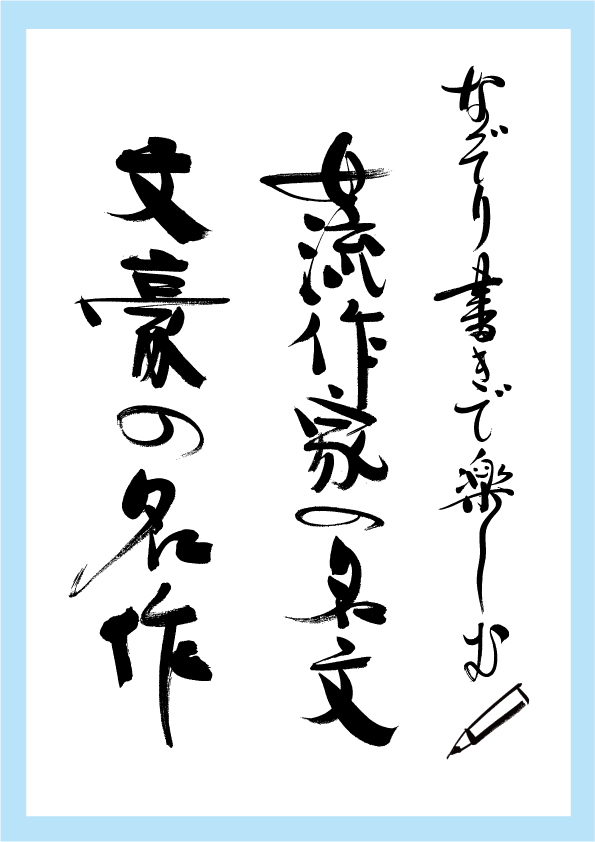 なぞり書きで楽しむ
女流作家の名文
文豪の名作